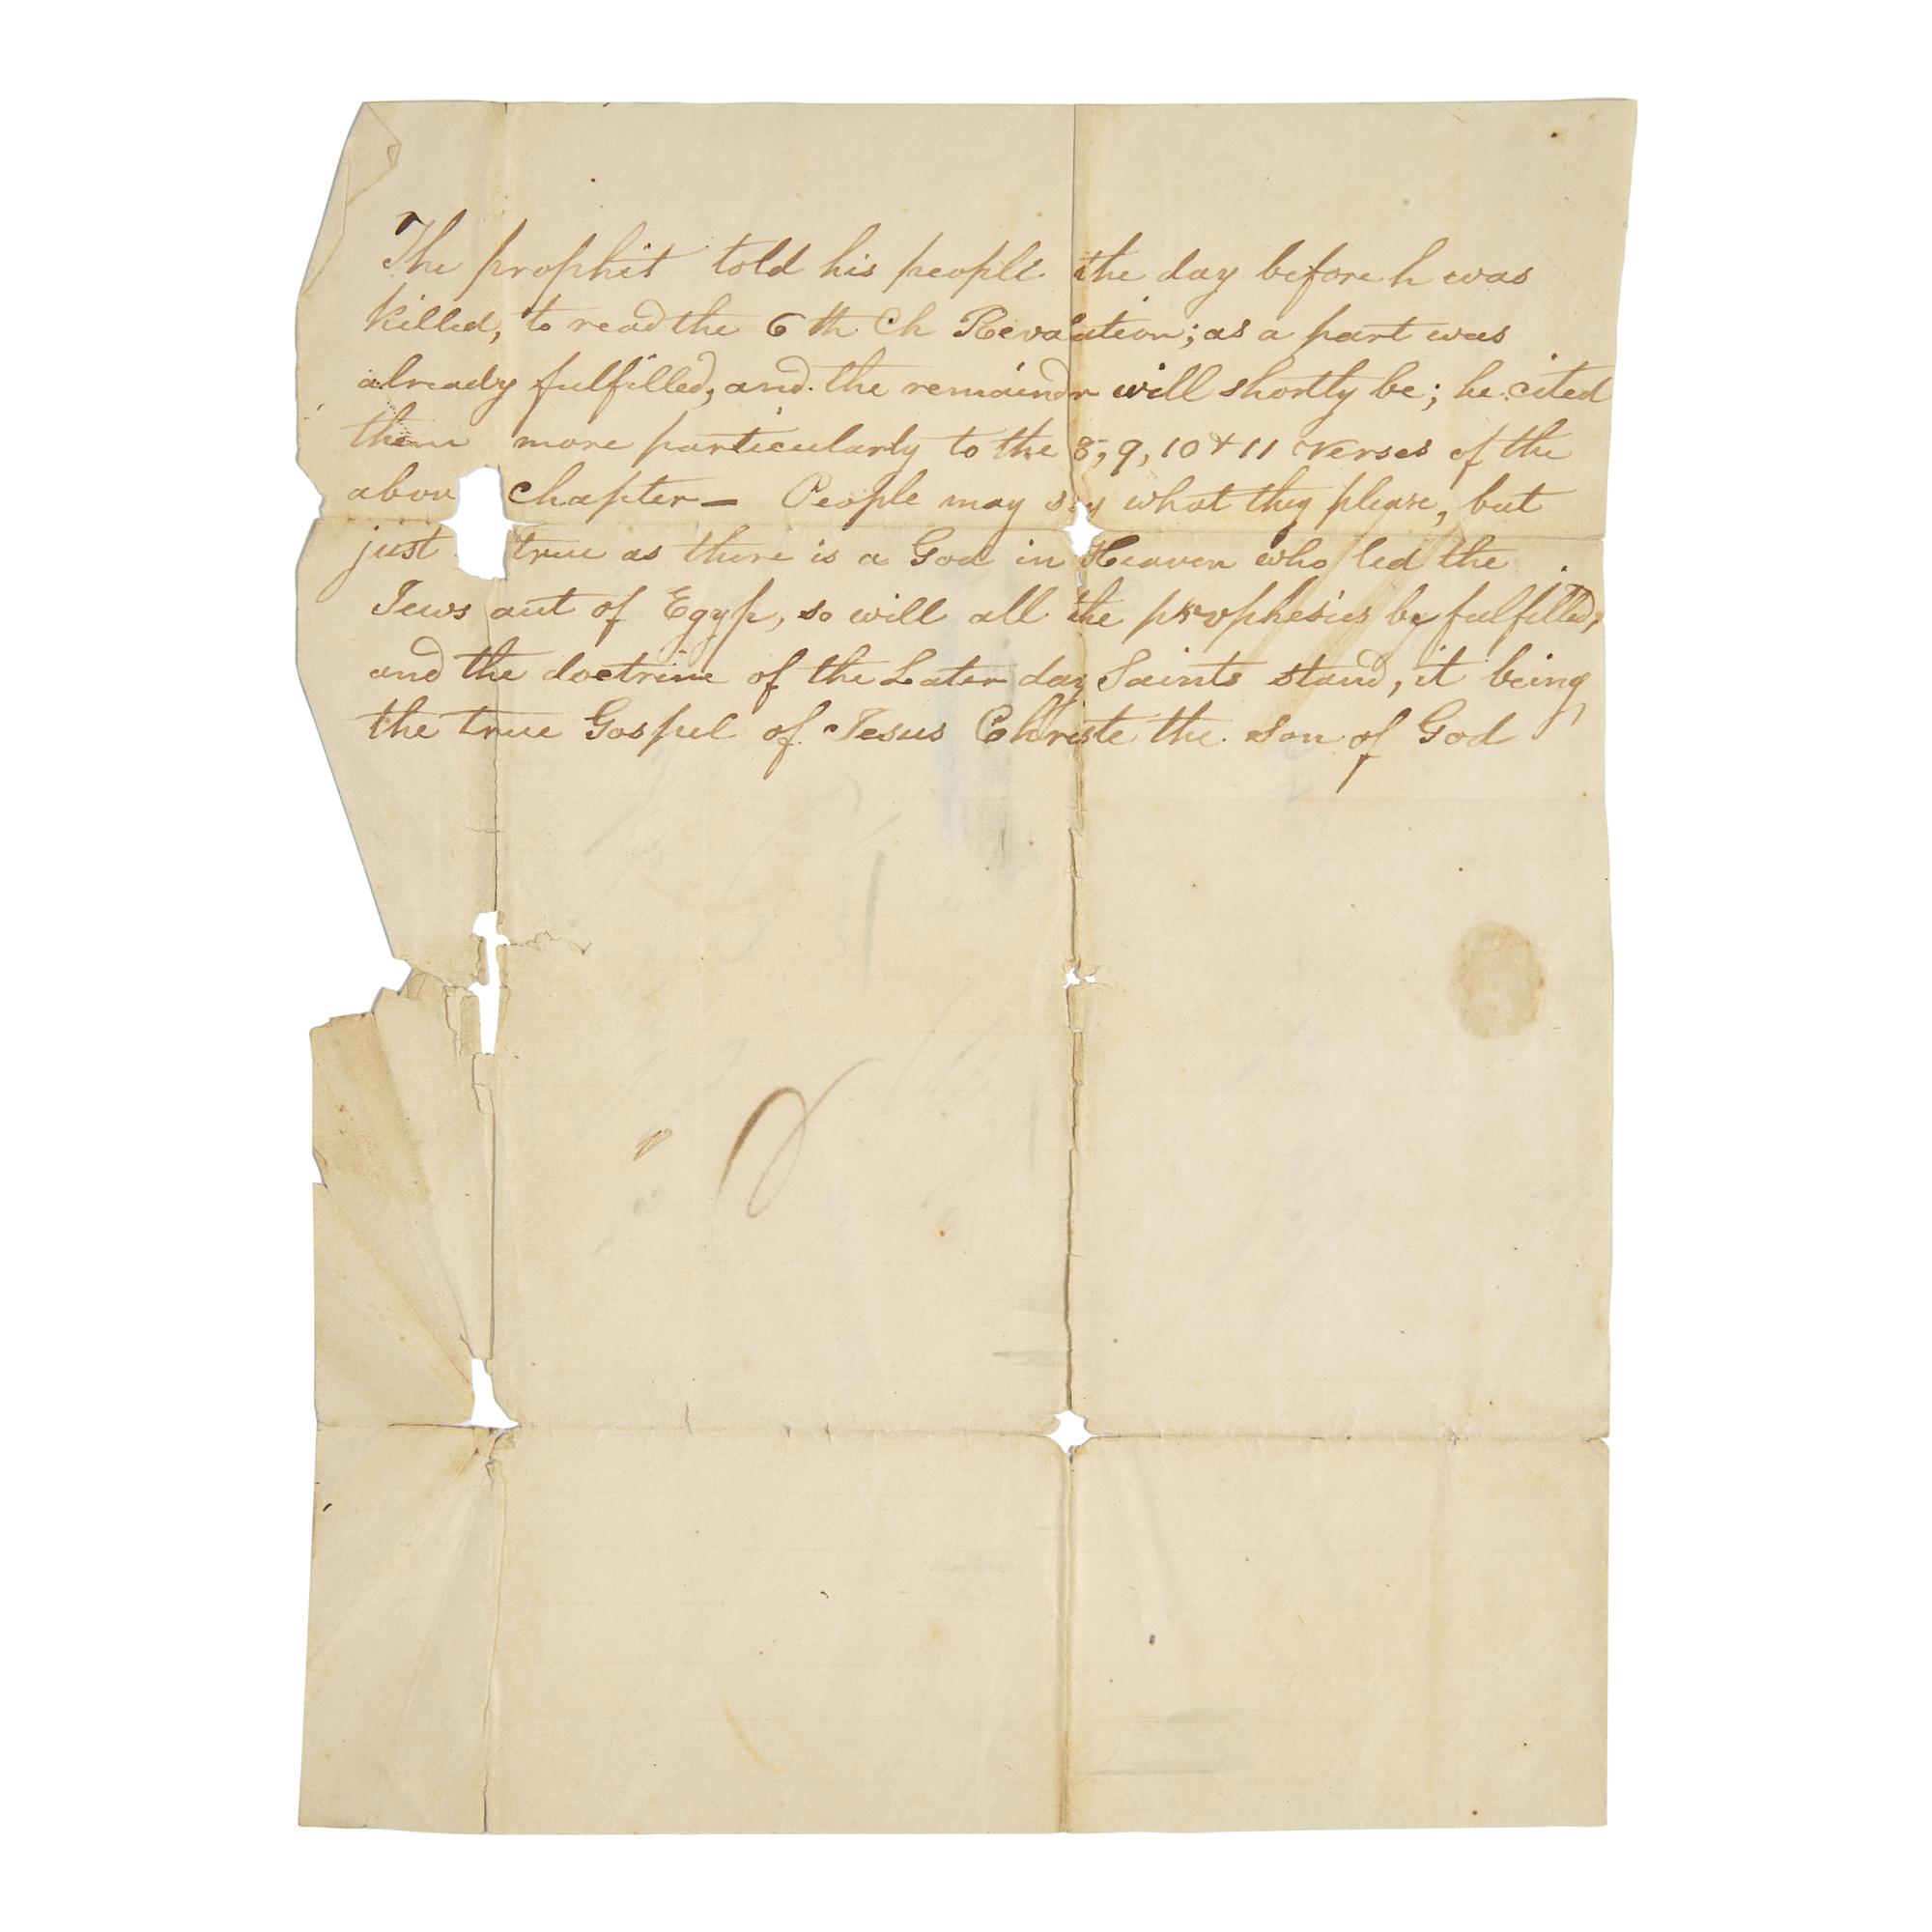 The prophit told his people the day before h was
killed, to read the 6 th Ch Revalation; as a part was
already fulfilled, and the remaindr will shortly be; he cited
them more particularly to the 8, 9, 10 + 11 verses of the
abov chapter — People may say what they please, but
just true as there is a God in Heaven who led the
Jews out of Egyp, so will all the prophesies be fulfilled,
and the doctrine of the Later day Saints stand, it being
the true Gospel of Jesus Christe the son of God